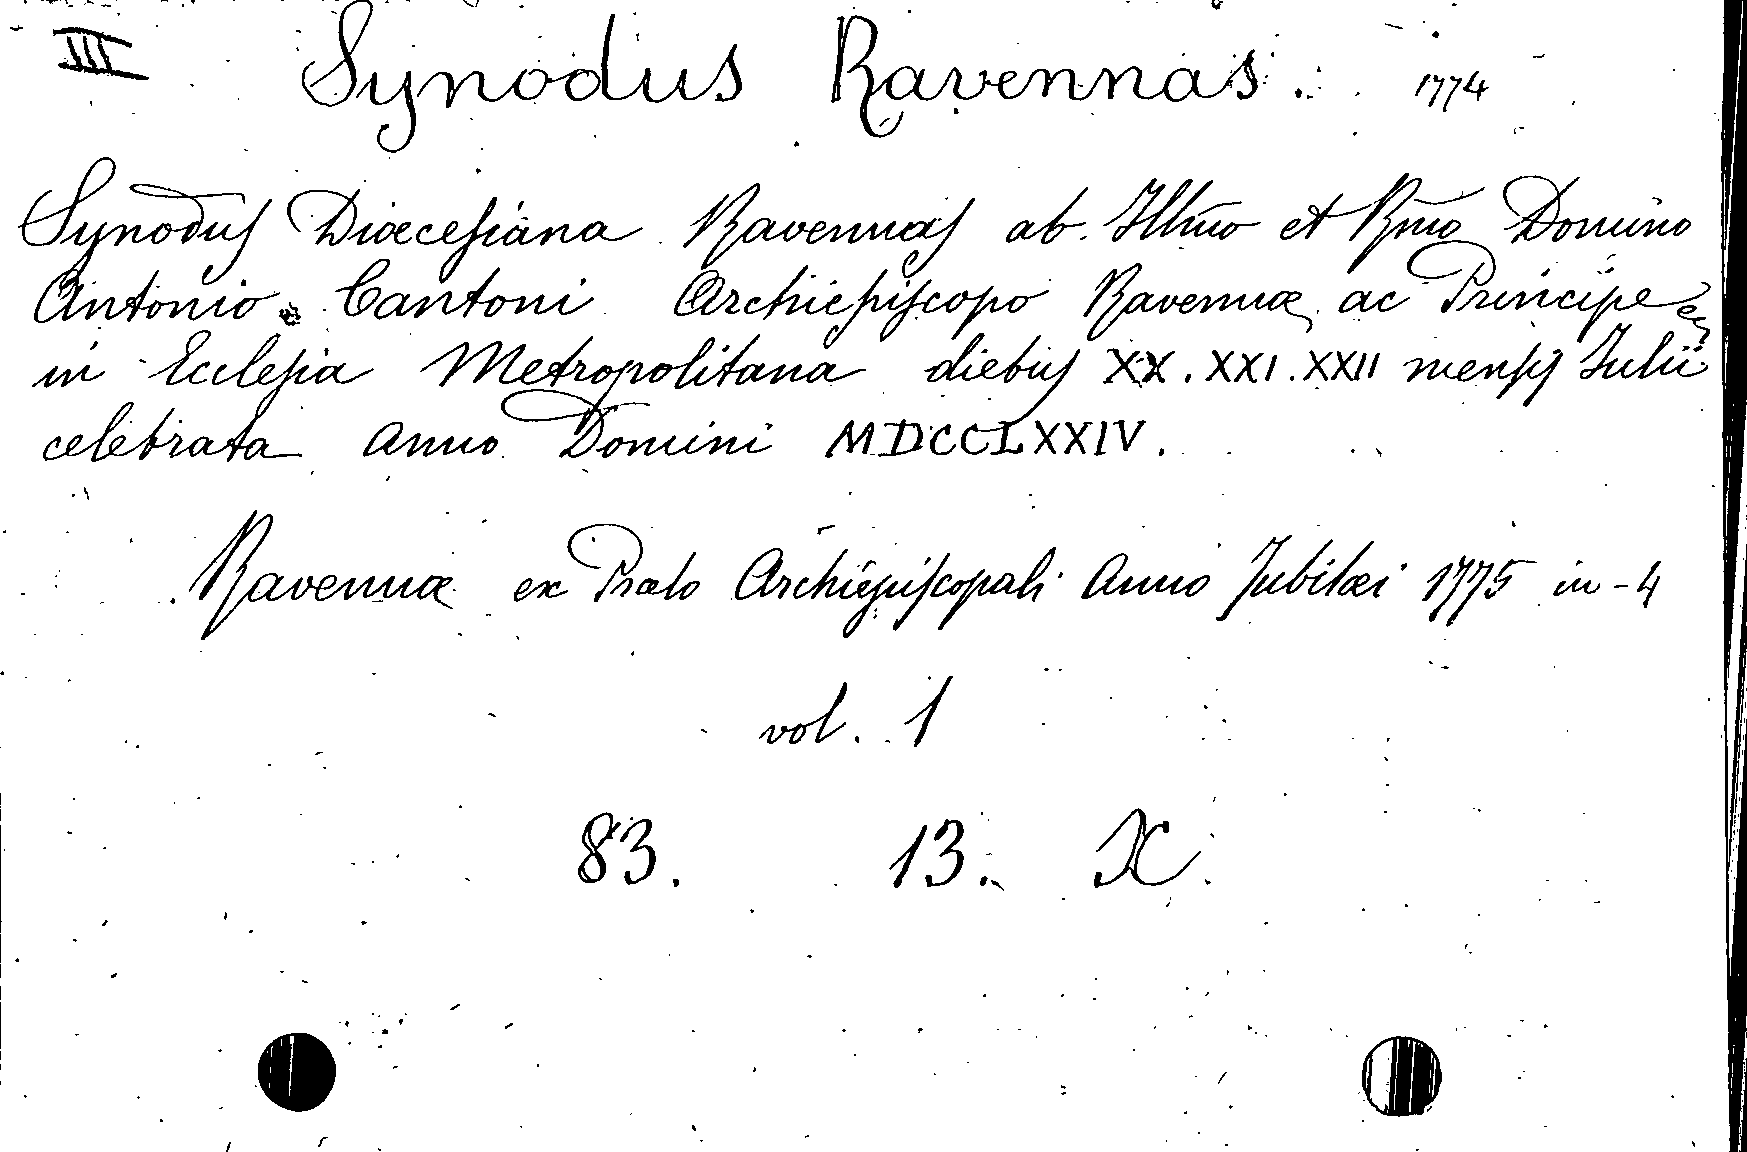 III Synodus Ravennas. 1774
Synodus Diœcesiana Ravennas ab Illmo et Rmo Domino
Antonio Cantoni Archiepiscopo Ravennæ ac Principe &
in Ecclesia Metropolitana diebus XX. XXI. XXII mensis Iulii
celebrata anno Domini MDCCLXXIV.
Ravennæ ex Prælo Archiepiscopali Anno Jubilæi 1775 in-4
vol. 1
83. 13. X.